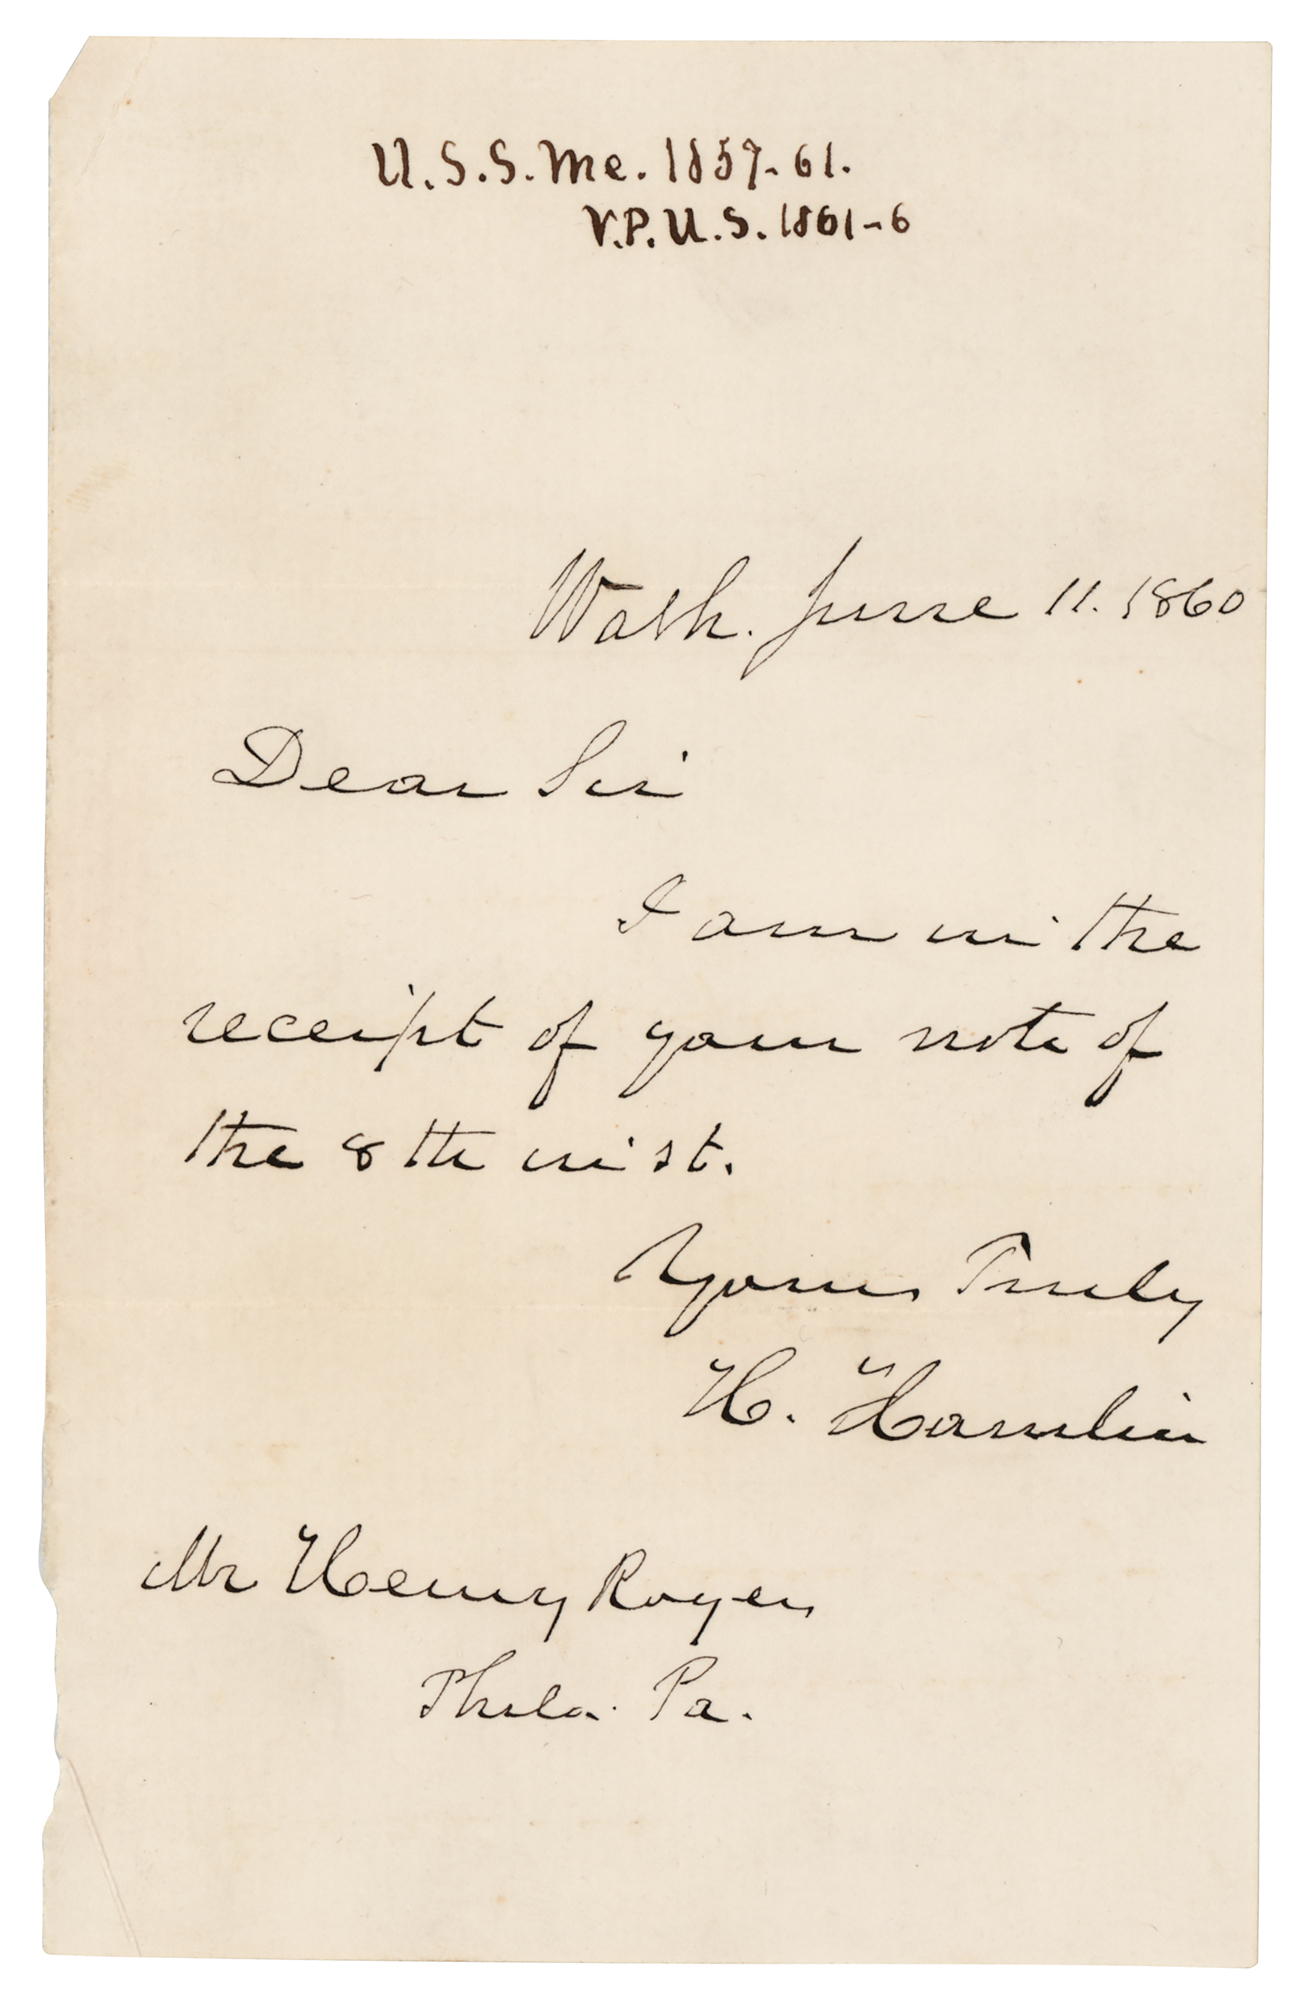 U.S.S. Me. 1857-61.
V.P.U.S. 1861-6
Wash. June 11. 1860
Dear Sir
I am in the
receipt of your note of
the 8th inst.
Yours Truly
H. Hamlin
Mr Henry Royer
Phila. Pa.